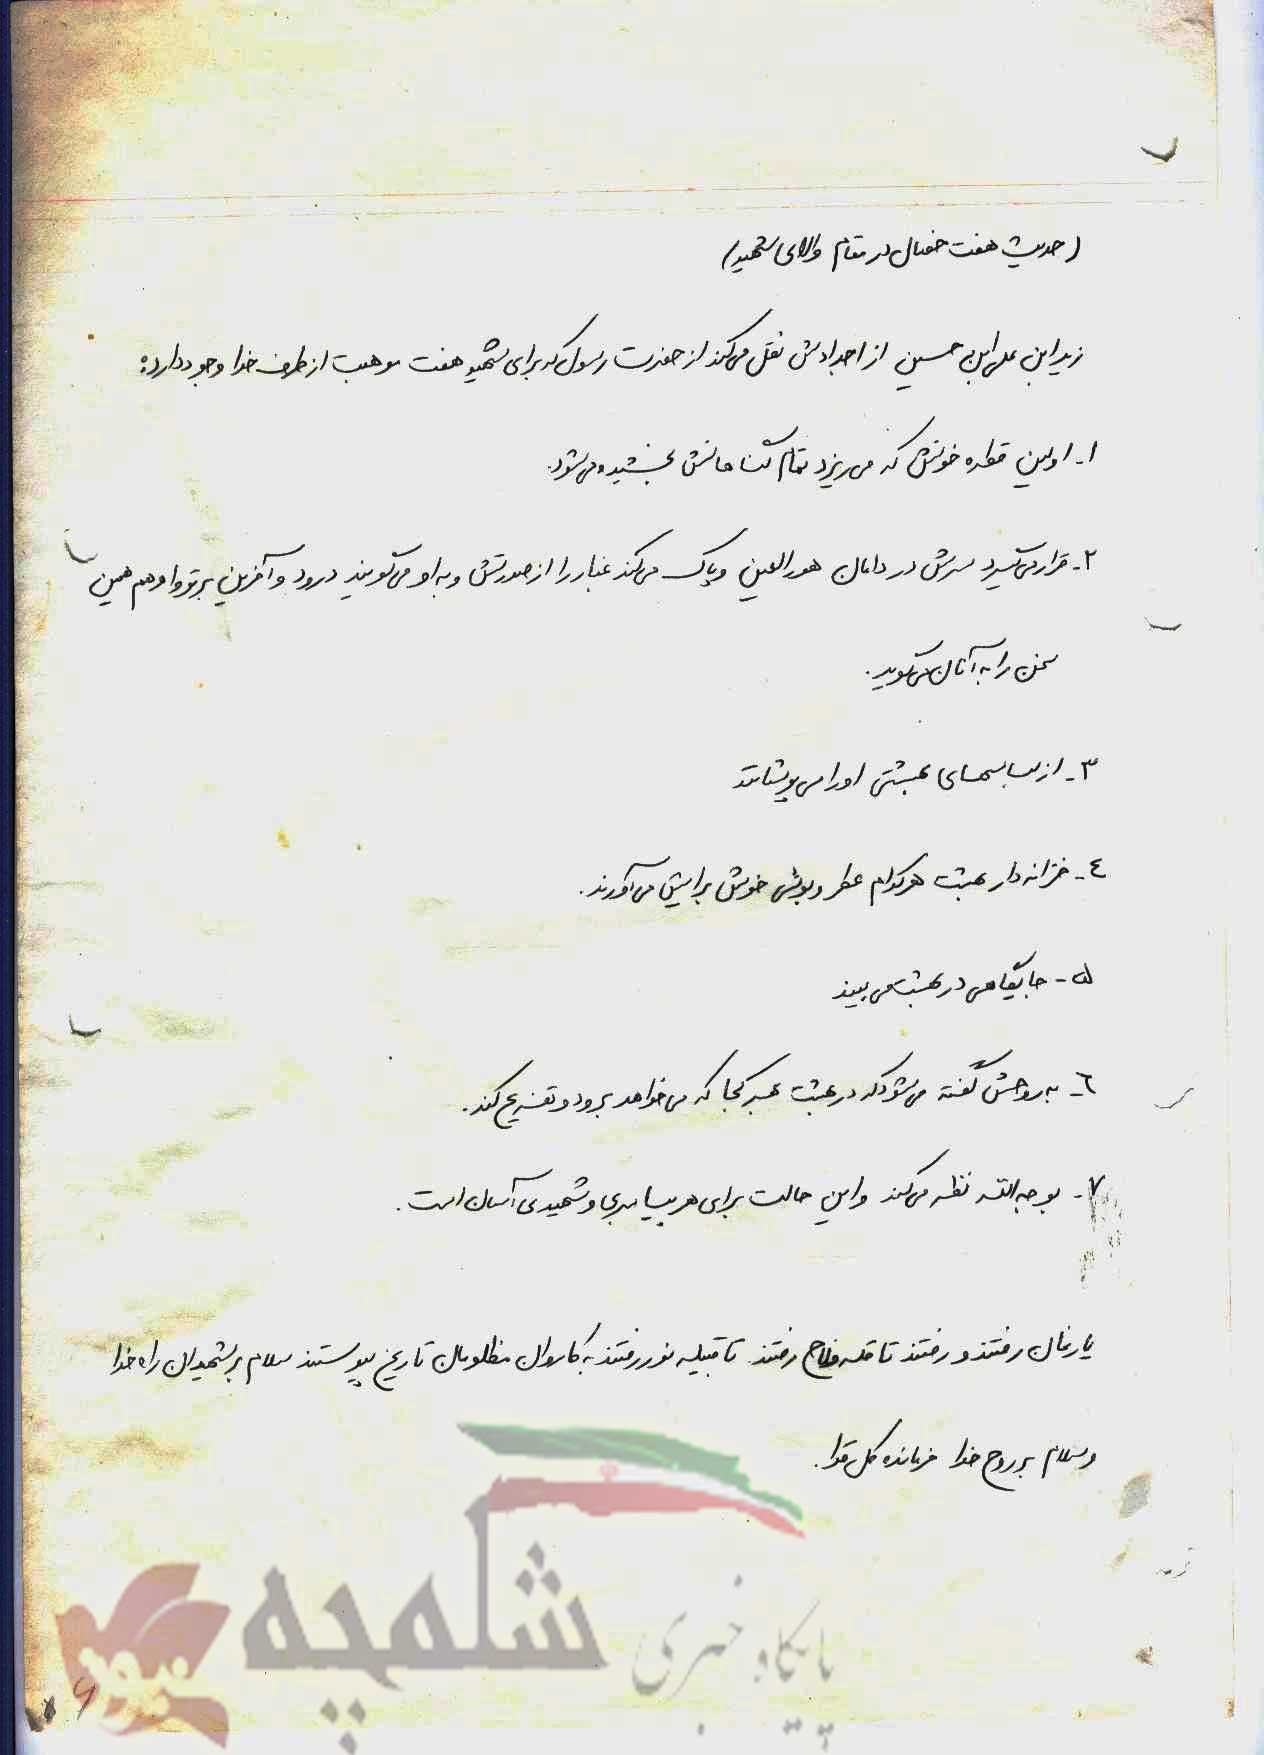 (حدیث هفت خصال در مقام والای شهید)
زید ابن علی ابن حسین از اجدادش نقل می‌کند از حضرت رسول که برای شهید هفت موهبت از طرف خدا وجود دارد:
۱- اولین قطره خونش که می‌ریزد تمام گناهانش بخشیده می‌شود.
۲- قرار می‌گیرد سرش در دامان هورالعین و پاک می‌کند غبار را از صورتش و به او می‌گویند درود و آفرین بر تو و او هم همین
سخن را به آنان می‌گوید.
۳- از لباسهای بهشتی او را می‌پوشانند
۴- خزانه‌دار بهشت هرکدام عطر و بوئی خوش برایش می‌آورند.
۵- جایگاهی در بهشت می‌بیند
۶- به روحش گفته می‌شود که در بهشت بهر کجا که می‌خواهد برود و تفریح کند.
۷- بوجه الله نظر می‌کند و این حالت برای هر پیامبری و شهیدی آسان است.
یارمان رفتند و رفتند تا قله فلاح رفتند تا قبیله نور رفتند به کاروان مظلومان تاریخ پیوستند سلام بر شهیدان راه خدا
و سلام بر روح خدا فرمانده کل قوا.
پایگاه خبری شلمچه
نیوز
۶